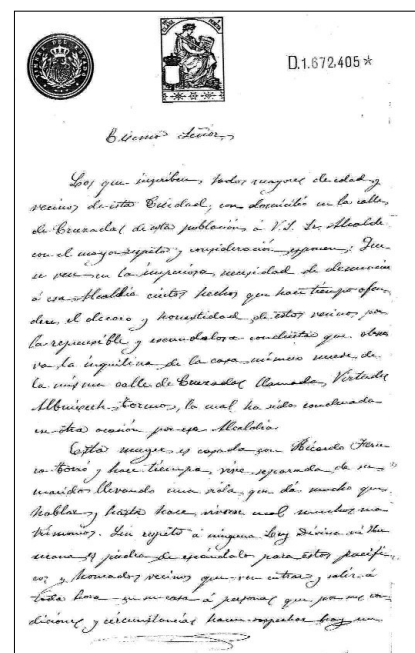 D.1.672.405*
Excmo Señor,
Los que suscriben, todos mayores de edad y
vecinos de esta Ciudad, con domicilio en la calle
de Cruzadas de esta población á V.S. Sr. Alcalde
con el mayor respeto y consideración exponen: Que
se ven en la imperiosa necesidad de denunciar
á esa Alcaldía ciertos hechos que hace tiempo ofen
den el decoro y honestidad de estos vecinos por
la reprensible y escandalosa conducta que obser
va la inquilina de la casa número nueve de
la misma calle de Cruzadas llamada, Virtudes
Albuixech, la cual ha sido condenada
en otra ocasión por esa Alcaldía.
Esta mujer es casada con Ricardo
y hace tiempo, vive separada de su
marido llevando una vida, que dá mucho que
hablar y hasta hace vivir mal muchos ma
trimonios. Sin respeto á ninguna Ley Divina ni Hu
mana es piedra de escándalo para estos pacífi
cos y honrados vecinos que ven entrar y salir á
toda hora en su casa á personas que por sus con
diciones y circunstancias hacen sospechar hay un